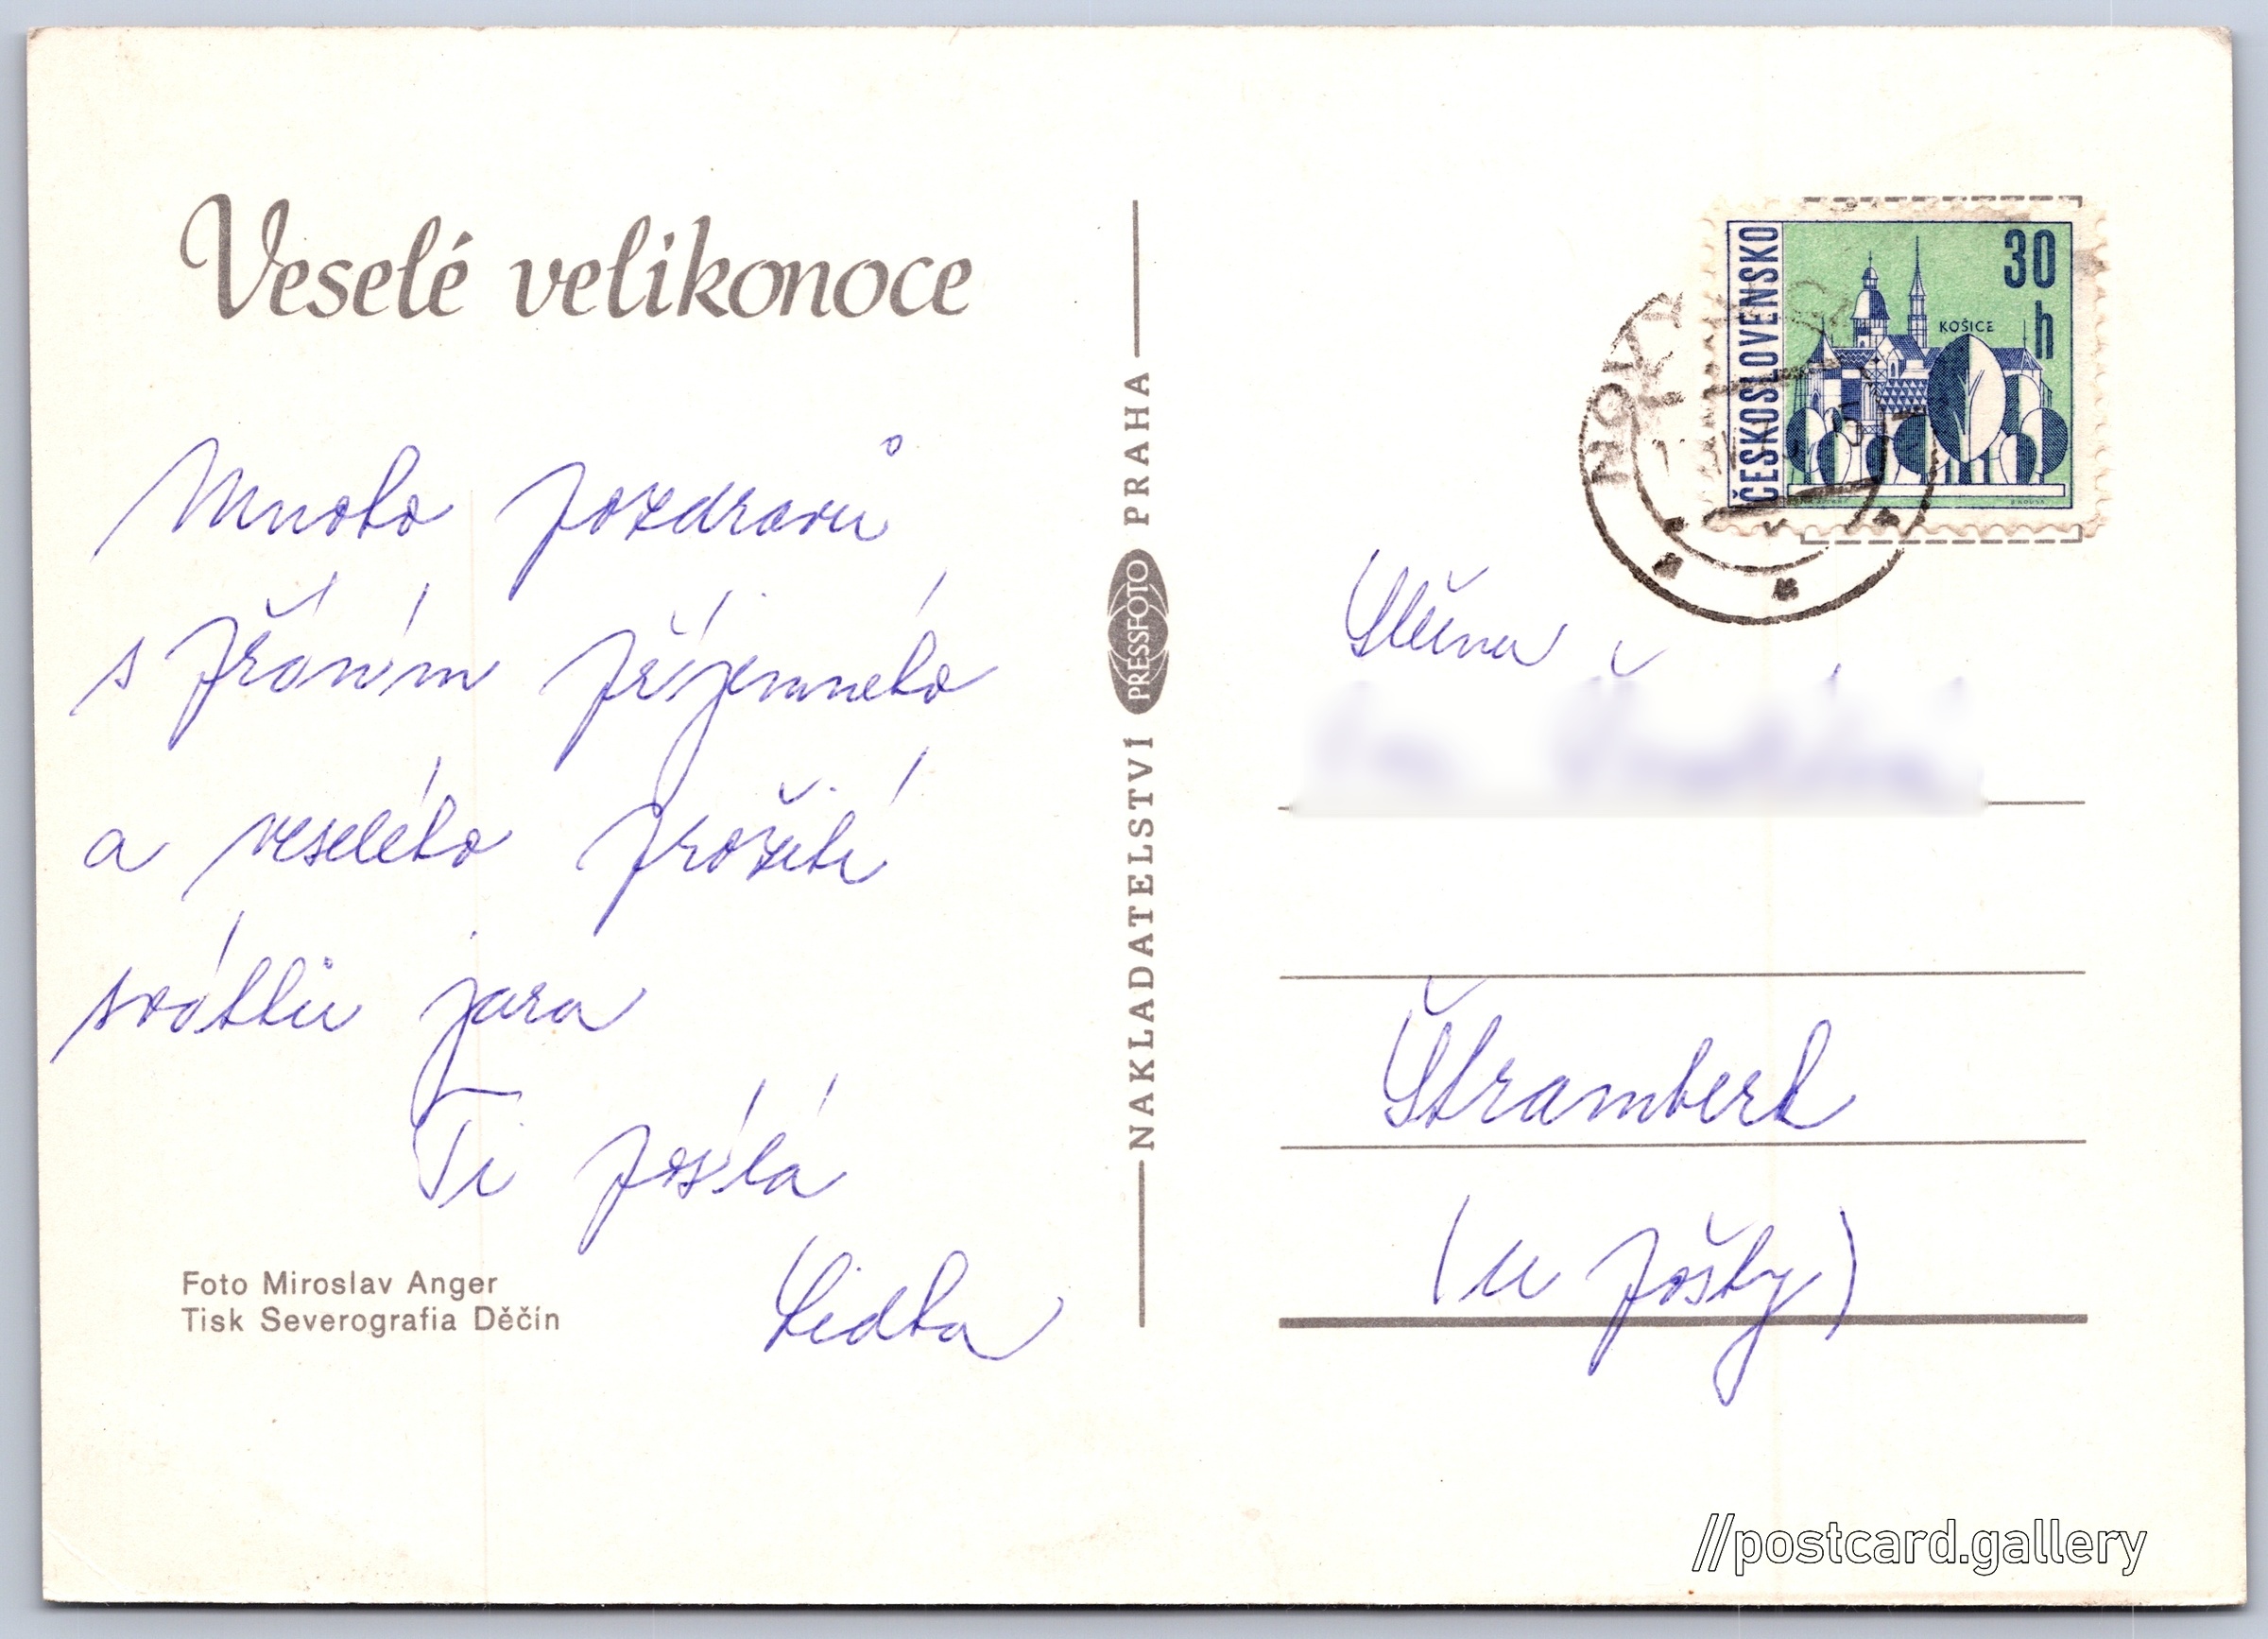 Veselé velikonoce
Mnoho pozdravů
s přáním příjemného
a veselého prožití
svátků jara
Ti posílá
Lidka
Foto Miroslav Anger
Tisk Severografia Děčín
NAKLADATELSTVÍ PRESSFOTO PRAHA
ČESKOSLOVENSKO
30
h
KOŠICE
NOVÝ
Slečna
Štramberk
(u pošty)
//postcard.gallery